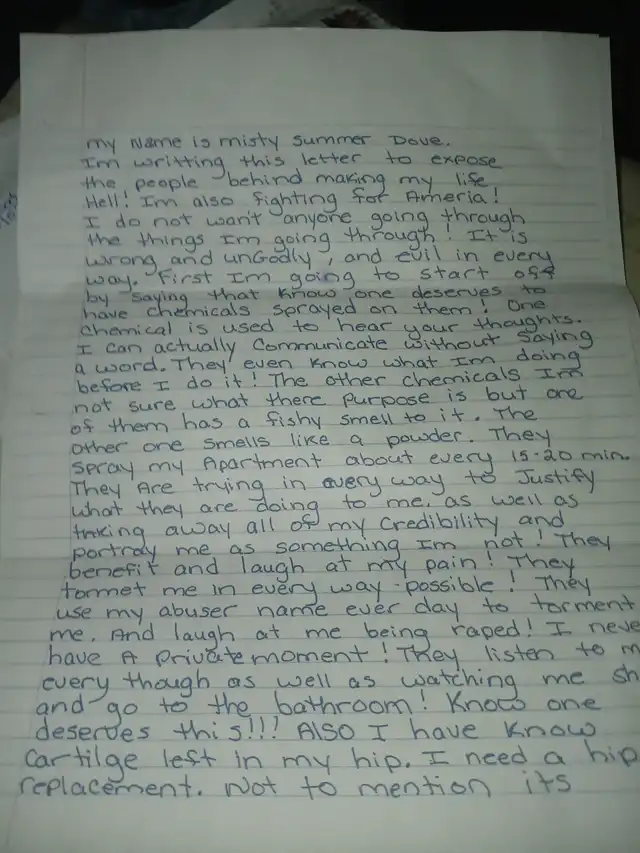 my Name is misty summer Dove.
Im writting this letter to expose
the people behind making my life
Hell! Im also fighting for Ameria!
I do not want anyone going through
the things Im going through! It is
wrong and unGodly, and evil in every
way. First Im going to start off
by saying that know one deserves to
have chemicals sprayed on them! One
chemical is used to hear your thoughts.
I can actually communicate without saying
a word. They even know what Im doing
before I do it! The other chemicals Im
not sure what there purpose is but one
of them has a fishy smell to it. The
other one smells like a powder. They
spray my Apartment about every 15-20 min.
They Are trying in every way to Justify
what they are doing to me. as well as
taking away all of my credibility and
portray me as something Im not! They
benefit and laugh at my pain! They
tormet me in every way possible! They
use my abuser name ever day to torment
me. And laugh at me being raped! I neve
have A private moment! They listen to m
every though as well as watching me sh
and go to the bathroom! Know one
deserves this!!! Also I have know
cartilge left in my hip. I need a hip
replacement. Not to mention its